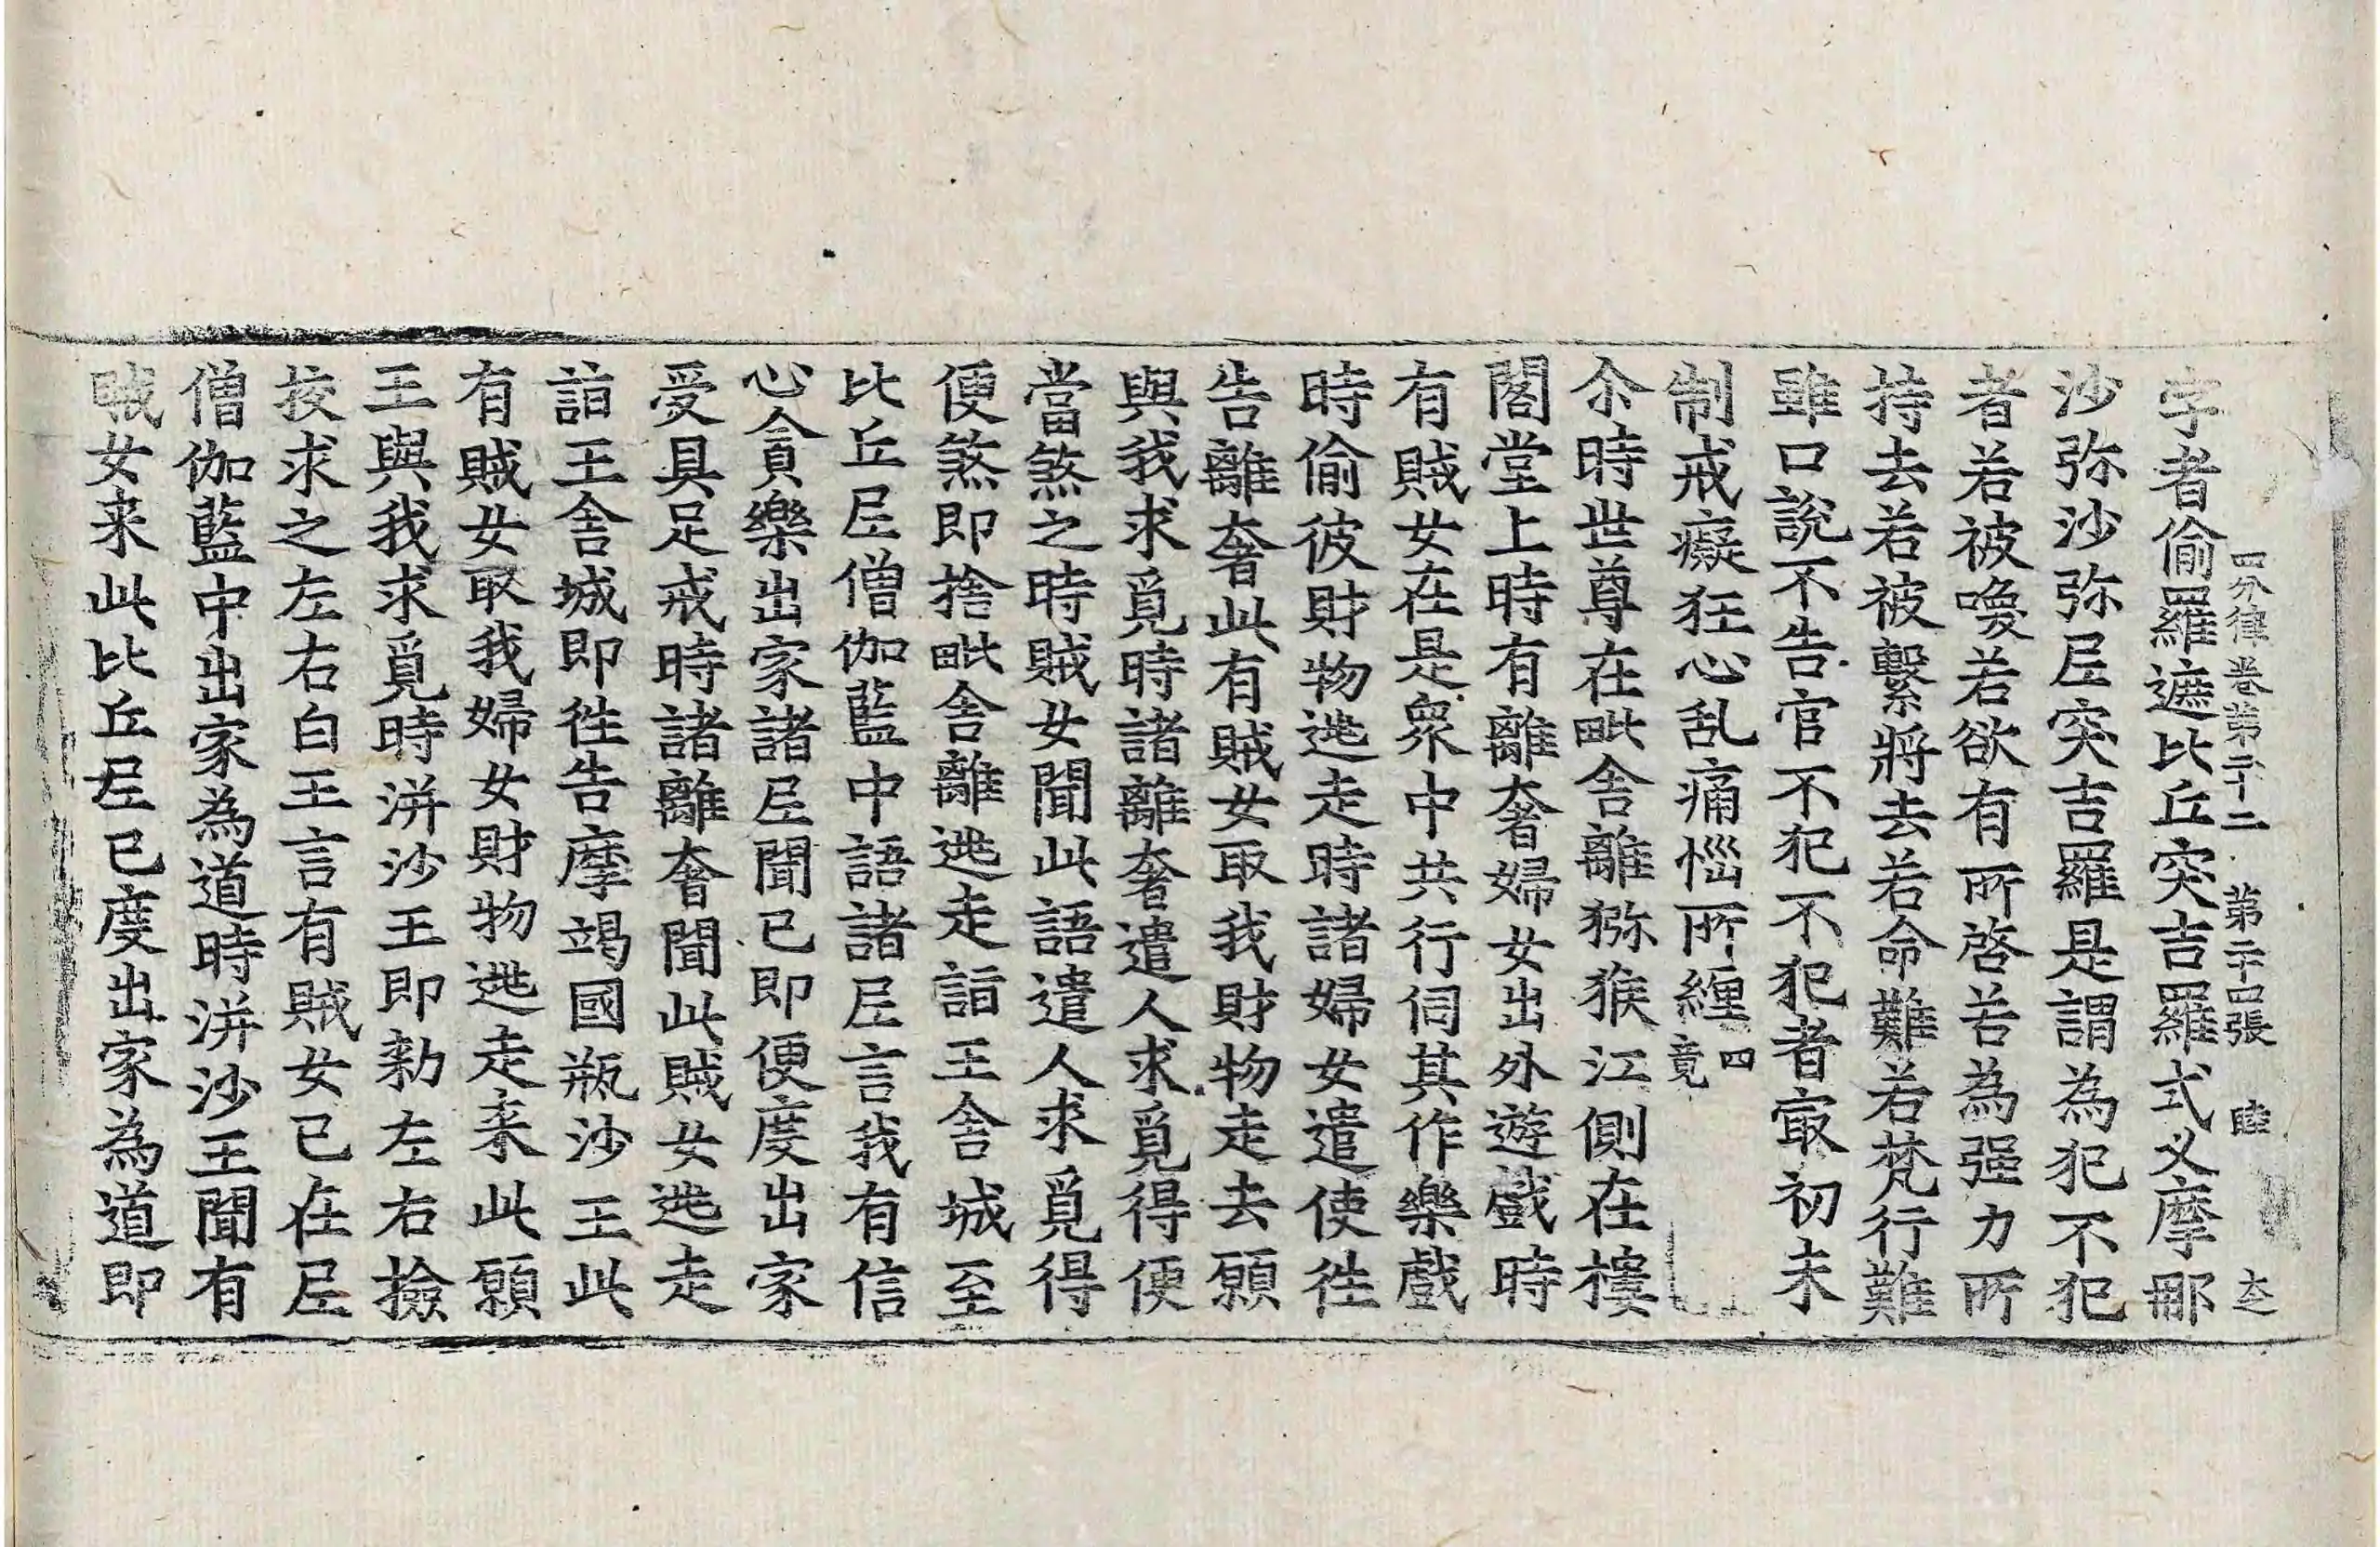 四分律卷第二十二　第二十四張　睦　大之
字者偷羅遮比丘突吉羅式叉摩那
沙弥沙弥尼突吉羅是謂為犯不犯
者若被喚若欲有所啓若為强力所
持去若被繫將去若命難若梵行難
雖口說不告官不犯不犯者㝡初未
制戒癡狂心乱痛惱所纏四竟
尒時世尊在毗舍離猕猴江側在樓
閣堂上時有離奢婦女出外遊戲時
有賊女在是衆中共行伺其作樂戲
時偷彼財物逃走時諸婦女遣使往
告離奢此有賊女取我財物走去願
與我求覓時諸離奢遣人求覓得便
當煞之時賊女聞此語遣人求覓得
便煞即捨毗舍離逃走詣王舍城至
比丘尼僧伽藍中語諸尼言我有信
心貪樂出家諸尼聞已即便度出家
受具足戒時諸離奢聞此賊女逃走
詣王舍城即往告摩竭國瓶沙王此
有賊女取我婦女財物逃走来此願
王與我求覓時洴沙王即勑左右撿
挍求之左右白王言有賊女已在尼
僧伽藍中出家為道時洴沙王聞有
賊女来此比丘尼已度出家為道即